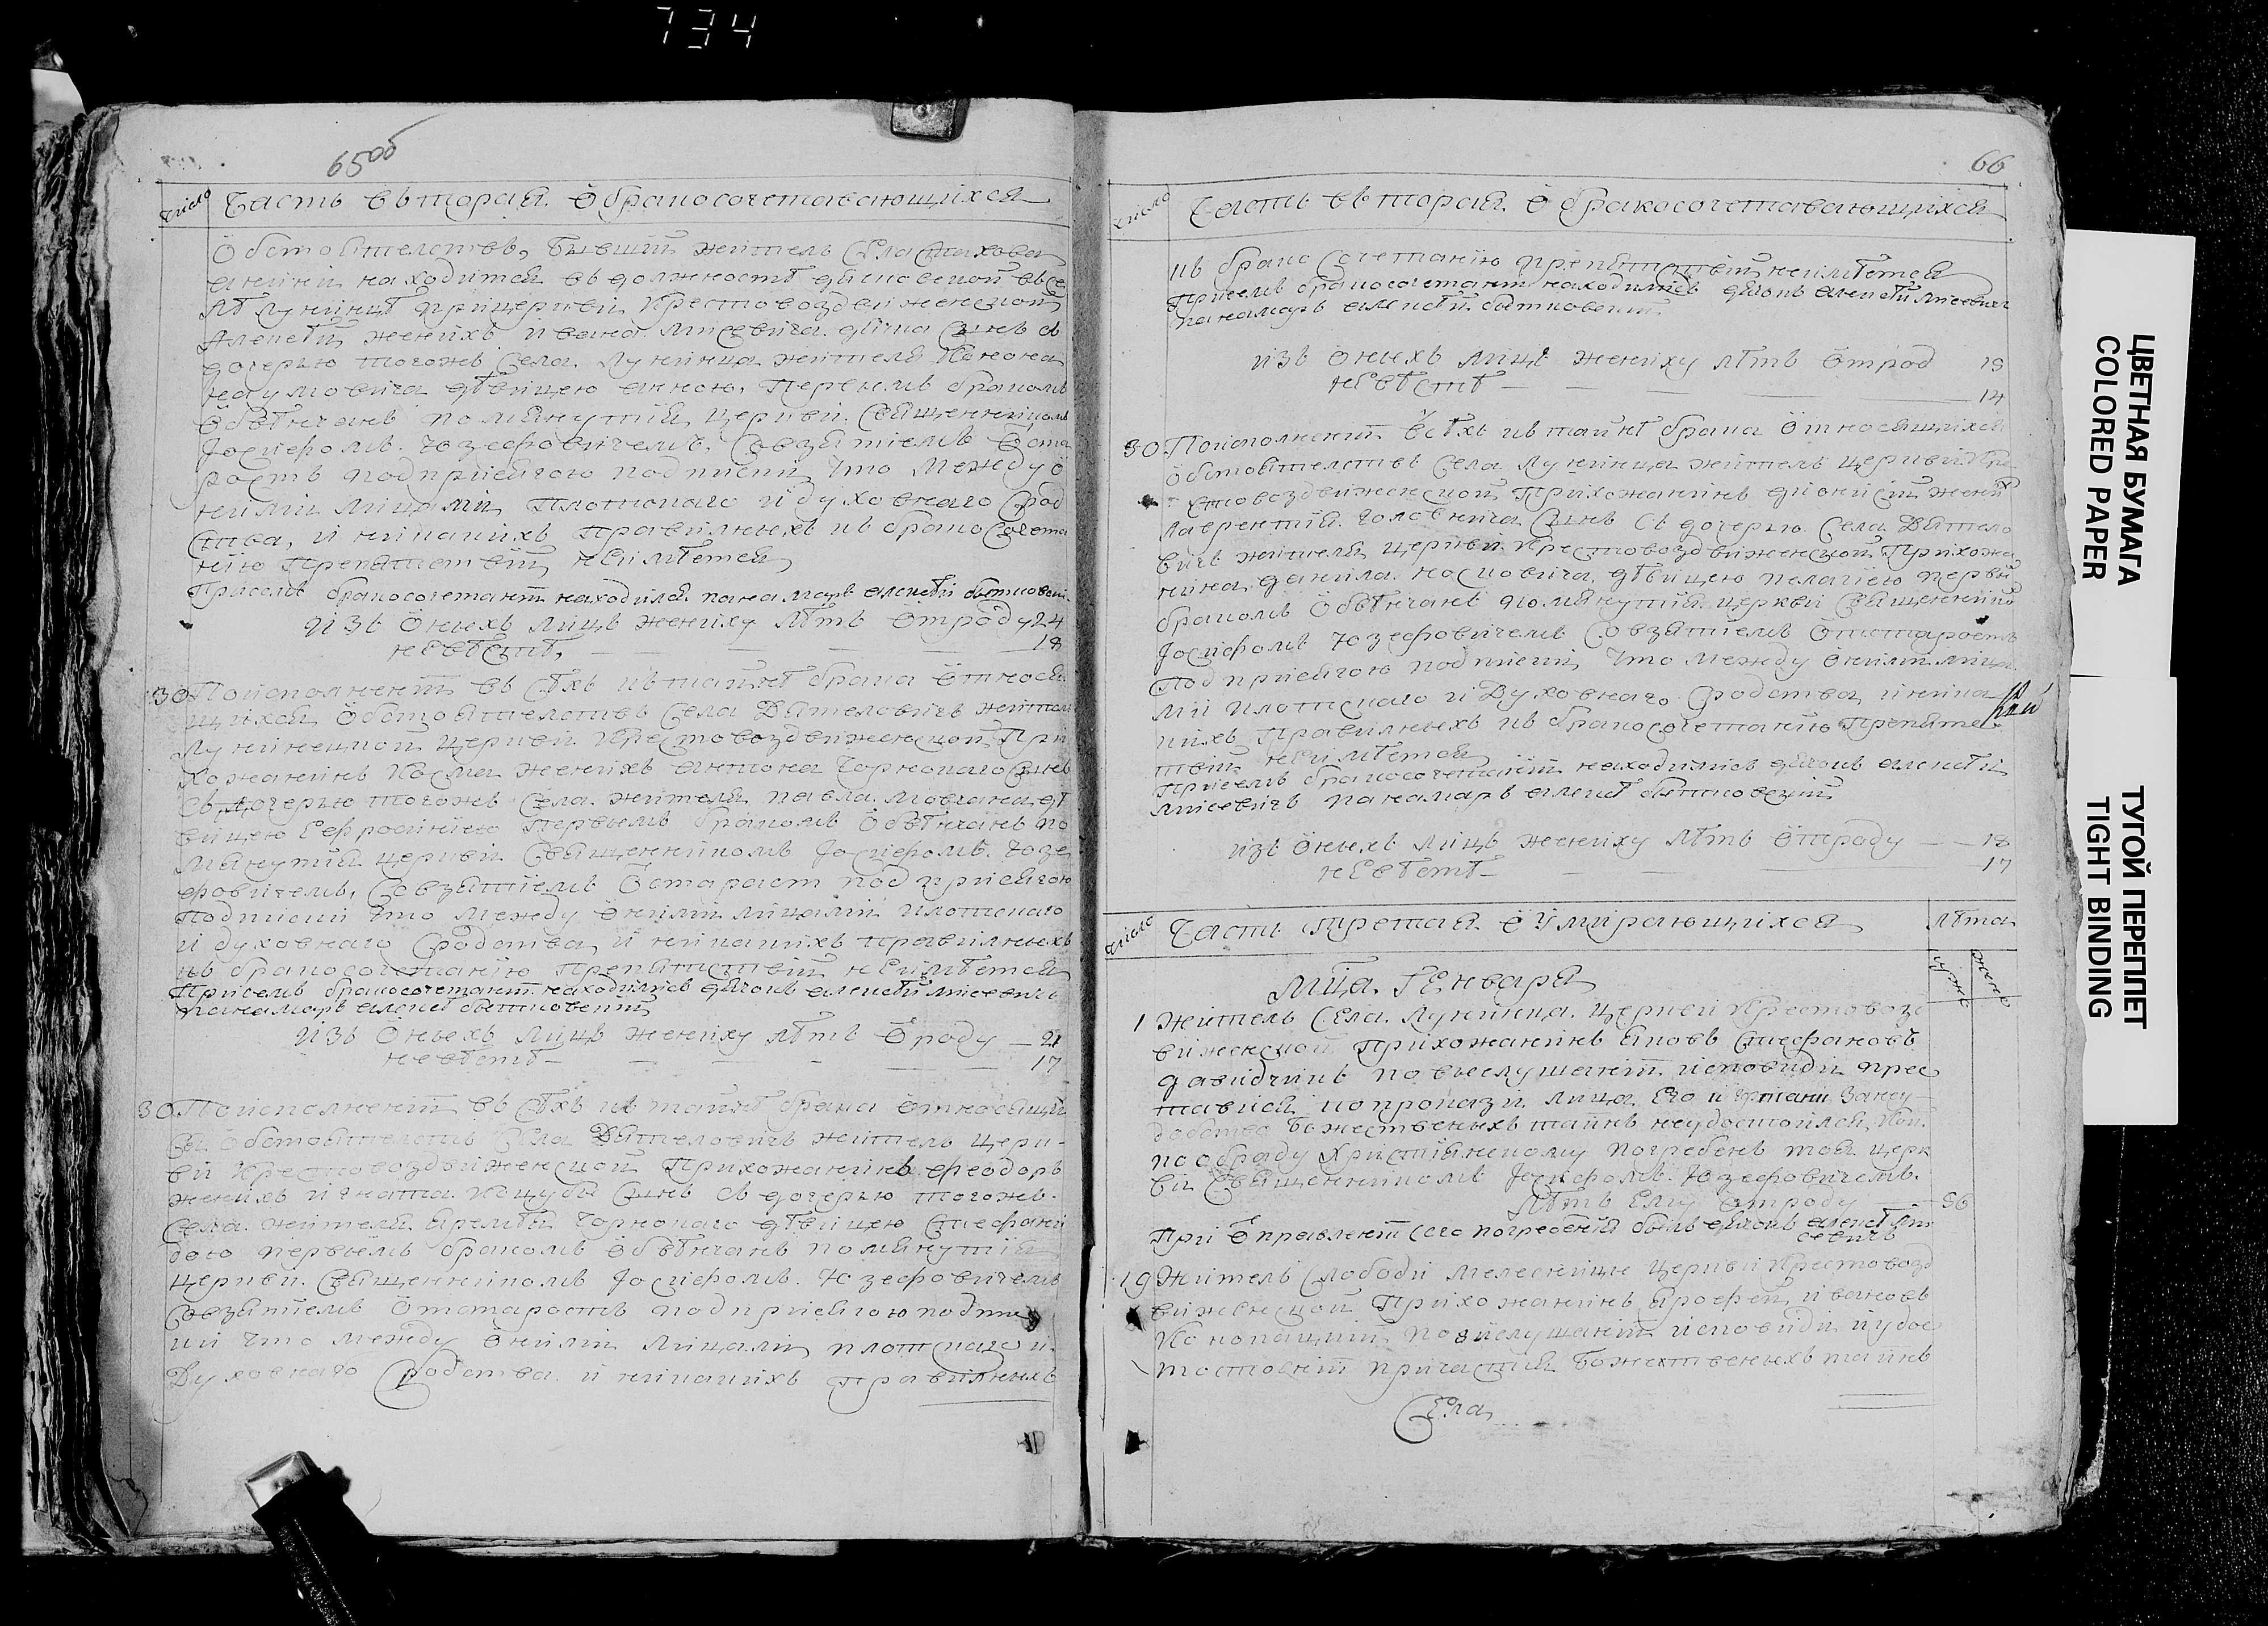 734
65об
число Часть вьторая О бракосочетавающихся
Обстоятелствъ, бывший жителъ Села
анинъ находится въ должностѣ дяковской въ Се
лѣ Лунинцѣ прицеркви Крестовоздвиженской
Алексѣй женихъ Ивана Лисевича дяка Сынъ съ
дочерью тогожъ Села Лунинца жителя Конона
Наумовича дѣвицею Анною, Первымъ бракомъ
Обвѣнчанъ помянутия церкви Священникомъ
Іосифомъ Юзефовичемъ, Совзятиемъ Ѡста
ростъ подприсягою подписки что Между о
ними лицами плотскаго и духовнаго Срод
ства, и никакихъ правилныхъ къ бракоСочета
нію Препятствий неимѣется
Присемъ бракосочетании находился панамаръ алексѣй
Изъ Оныхъ лицъ жениху лѣтъ Ѿроду 24
невѣстѣ, 18
30 Поисполнении въ Сѣхъ къ тайнѣ брака Ѿнося
щихся Обстоятелствъ Села Дятеловичъ жителъ
Лунинецкой церкви Крестовоздвиженской При
хожанинъ Косма женихъ Антона Чорнокаго Сынъ
Съ дочерью тогожъ Села жителя Павла Мовчана дѣ
вицею Еуфросиниею Первымъ бракомъ Обвѣнчанъ по
мянутия церкви Священникомъ Іосифомъ Юзе
фовичемъ, Совзятиемъ Ѡстарост подприсягою
подписки что между Оними лицами плотскаго
и духовнаго Сродства и никакихъ правилныхъ
къ бракосочетанию Препятствий неимѣется
Присемъ бракосочетании находились дяконъ алексѣй лисевичъ
панамаръ алексѣ
Изъ Оныхъ лицъ жениху лѣтъ Ѿроду 21
невѣстѣ 17
30 Поисполнении въ Сѣхъ къ тайнѣ брака Ѿносящих
ся Обстоятелствъ Села Дятеловичъ житель церк
ви Крестовоздвиженской Прихожанинъ Феодоръ
женихъ Игната Коцубы Сынъ съ дочерью тогожъ
Села жителя Яремѣи Чорнокаго дѣвицею Стефани
дою первымъ бракомъ Обвѣнчанъ помянутия
церкви Священникомъ Іосифомъ Юзефовичемъ
Совзятиемъ Ѿстаростъ подприсягою подпис
ки что между Оними лицами плотскаго и
Духовнаго Сродства и никакихъ правилныхъ
66
число Часть вьторая О бракосочетавающихся
къ брако Сочетанию препятствий неимѣется
Присемъ бракосочетании находились дяконъ алексѣй лисевичъ
панамаръ алексѣй
изъ Оныхъ лицъ жениху лѣтъ Ѿрод 19
невѣстѣ 14
30 Поисполнении всѣхъ къ тайнѣ брака Ѿносящихся
Обстоятелствъ Села Лунинца жителъ церкви Кре
стовоздвиженской Прихожанинъ Дионисий жених
Лаврентия Головнича Сынъ Съ дочерью Села Дятело
вичъ жителя церкви Крестовоздвиженской Прихожа
нина Данила Носковича дѣвицею Пелагиею первы
бракомъ Обвѣнчанъ помянутия церкви Священнико
Іосифомъ Юзефовичемъ Совзятиемъ Ѿстаростъ
Подприсягою подписки что между Оними лица
ми плотскаго и Духовнаго Сродства и ника
кихъ правилныхъ къ бракосочетанию препятс
твий неимѣется
Присемъ бракосочетании находились дяконъ алексѣй
лисевичъ панамаръ алексѣ
изъ Оныхъ лицъ жениху лѣтъ Ѿроду 18
невѣстѣ 17
число Часть третая Ѡ Умирающихся лѣта
мужс женс
Мца Генваря
1 жителъ Села Лунинца церкви Крестовозд
виженской Прихожанинъ Яковъ Стефановъ
Давидчикъ повыслушании исповиди прес
тавися лица Его и гортани
Божественныхъ тайнъ неудостоился, Кои
пообряду Християнскому погребенъ тоя церк
ви Священникомъ Іосифомъ Юзефовичемъ.
Лѣтъ Ему Ѿроду 36
При Ѿправлении Сего погребения былъ дяконъ алексѣ ли
севичъ
19 Жителъ Слободи Мелесницы церкви Крестовозд
виженской Прихожанинъ Ярофей Ивановъ
повислушании исповиди и удос
тоении причастия Божественныхъ тайнъ
Села
ЦВЕТНАЯ БУМАГА
COLORED PAPER
ТУГОЙ ПЕРЕПЛЕТ
TIGHT BINDING